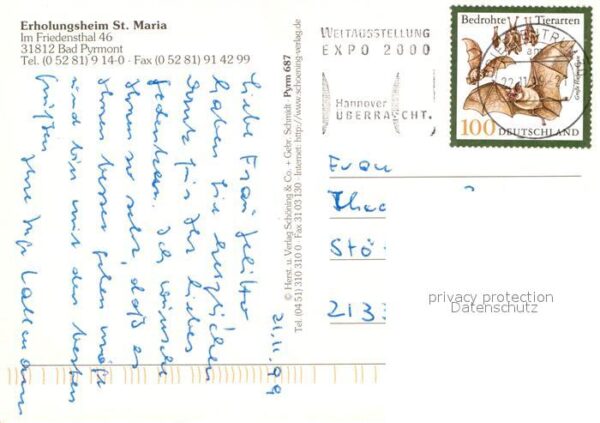 Erholungsheim St. Maria
Im Friedensthal 46
31812 Bad Pyrmont
Tel. (0 52 81) 9 14-0 · Fax (0 52 81) 91 42 99
21.11.99
Liebe Frau
haben Sie herzlichen
Dank für Ihr liebes
Gedenken. Ich wünsche
Ihnen so sehr, daß es
Ihnen besser gehen möge
und bin mit den besten
Grüßen Ihre Inge
© Herst. u. Verlag Schöning & Co. + Gebr. Schmidt Pyrm 687
Tel. (04 51) 310 310 0 · Fax 31 03 130 · Internet: http://www.schoening-verlag.de
WELTAUSSTELLUNG
EXPO 2000
Hannover
ÜBERRASCHT.
Bedrohte Tierarten
22.11.
100 DEUTSCHLAND
Frau
Thea
Stö
privacy protection
Datenschutz